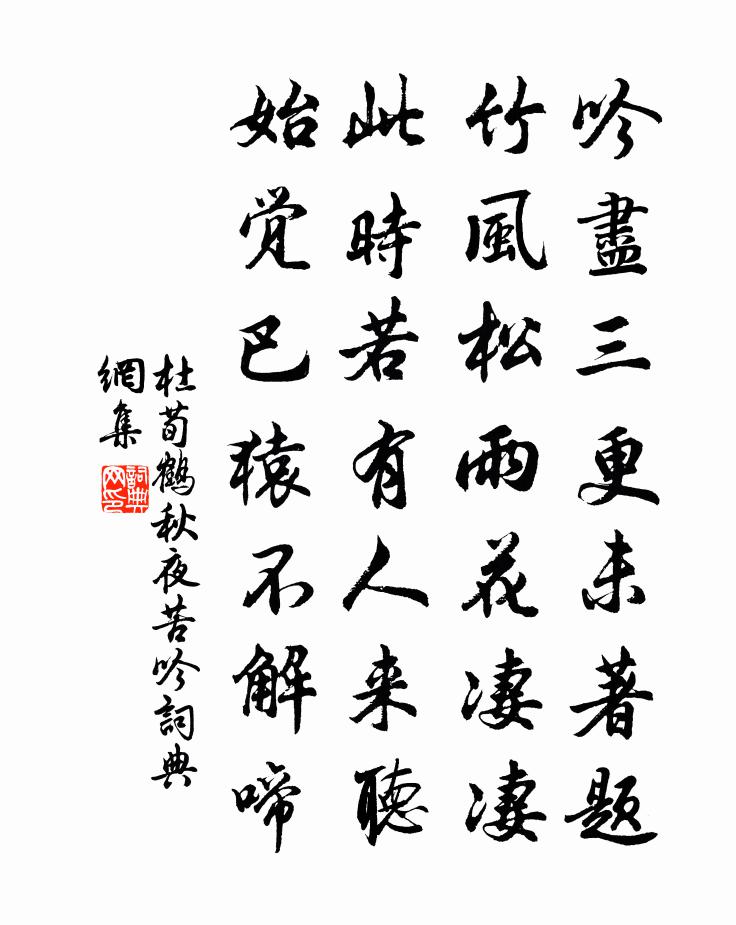 吟盡三更未著題
竹風松雨花凄凄
此時若有人来聽
始觉巴猿不解啼
杜荀鶴秋夜苦吟詞典
網集
詞典
网印